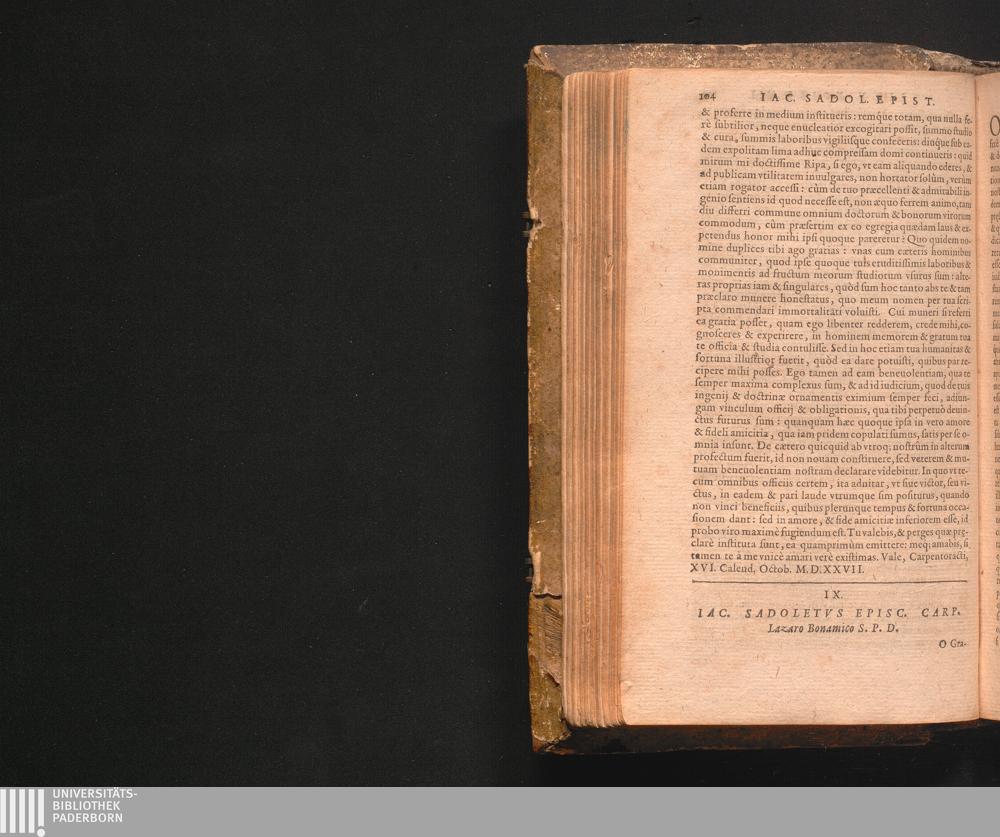 104 IAC. SADOL. EPIST.
& proferre in medium institueris: remque totam, qua nulla fe-
rè subtilior, neque enucleatior excogitari possit, summo studio
& cura, summis laboribus vigiliisque confeceris: diuque sub ea-
dem expolitam lima adhuc compressam domi continueris: quid
mirum mi doctissime Ripa, si ego, vt eam aliquando ederes, &
ad publicam vtilitatem inuulgares, non hortator solùm, verùm
etiam rogator accessi: cùm de tuo præcellenti & admirabili in-
genio sentiens id quod necesse est, non æquo ferrem animo, tam
diu differri commune omnium doctorum & bonorum virorum
commodum, cùm præsertim ex eo egregia quædam laus & ex-
petendus honor mihi ipsi quoque pareretur? Quo quidem no-
mine duplices tibi ago gratias: vnas cum cæteris hominibus
communiter, quod ipse quoque tuis eruditissimis laboribus &
monimentis ad fructum meorum studiorum vsurus sum: alte-
ras proprias iam & singulares, quòd sum hoc tanto abs te & tam
præclaro munere honestatus, quo meum nomen per tua scri-
pta commendari immortalitati voluisti. Cui muneri si referri
ea gratia posset, quam ego libenter redderem, crede mihi, co-
gnosceres & experirere, in hominem memorem & gratum tua
te officia & studia contulisse. Sed in hoc etiam tua humanitas &
fortuna illustrior fuerit, quòd ea dare potuisti, quibus par re-
cipere mihi posses. Ego tamen ad eam beneuolentiam, qua te
semper maxima complexus sum, & ad id iudicium, quod de tuis
ingenij & doctrinæ ornamentis eximium semper feci, adiun-
gam vinculum officij & obligationis, qua tibi perpetuò deuin-
ctus futurus sum: quanquam hæc quoque ipsa in vero amore
& fideli amicitia, qua iam pridem copulati sumus, satis per se o-
mnia insunt. De cætero quicquid ab vtroq; nostrûm in alterum
profectum fuerit, id non nouam constituere, sed veterem & mu-
tuam beneuolentiam nostram declarare videbitur. In quo vt te-
cum omnibus officiis certem, ita adnitar, vt siue victor, seu vi-
ctus, in eadem & pari laude vtrumque sim positurus, quando
non vinci beneficiis, quibus plerunque tempus & fortuna occa-
sionem dant: sed in amore, & fide amicitiæ inferiorem esse, id
probo viro maximè fugiendum est. Tu valebis, & perges quæ præ-
clarè instituta sunt, ea quamprimùm emittere: meq; amabis, si
tamen te à me vnicè amari verè existimas. Vale, Carpentoracti,
XVI. Calend. Octob. M.D.XXVII.
IX.
IAC. SADOLETVS EPISC. CARP.
Lazaro Bonamico S. P. D.
O Gra-
UNIVERSITÄTS-
BIBLIOTHEK
PADERBORN